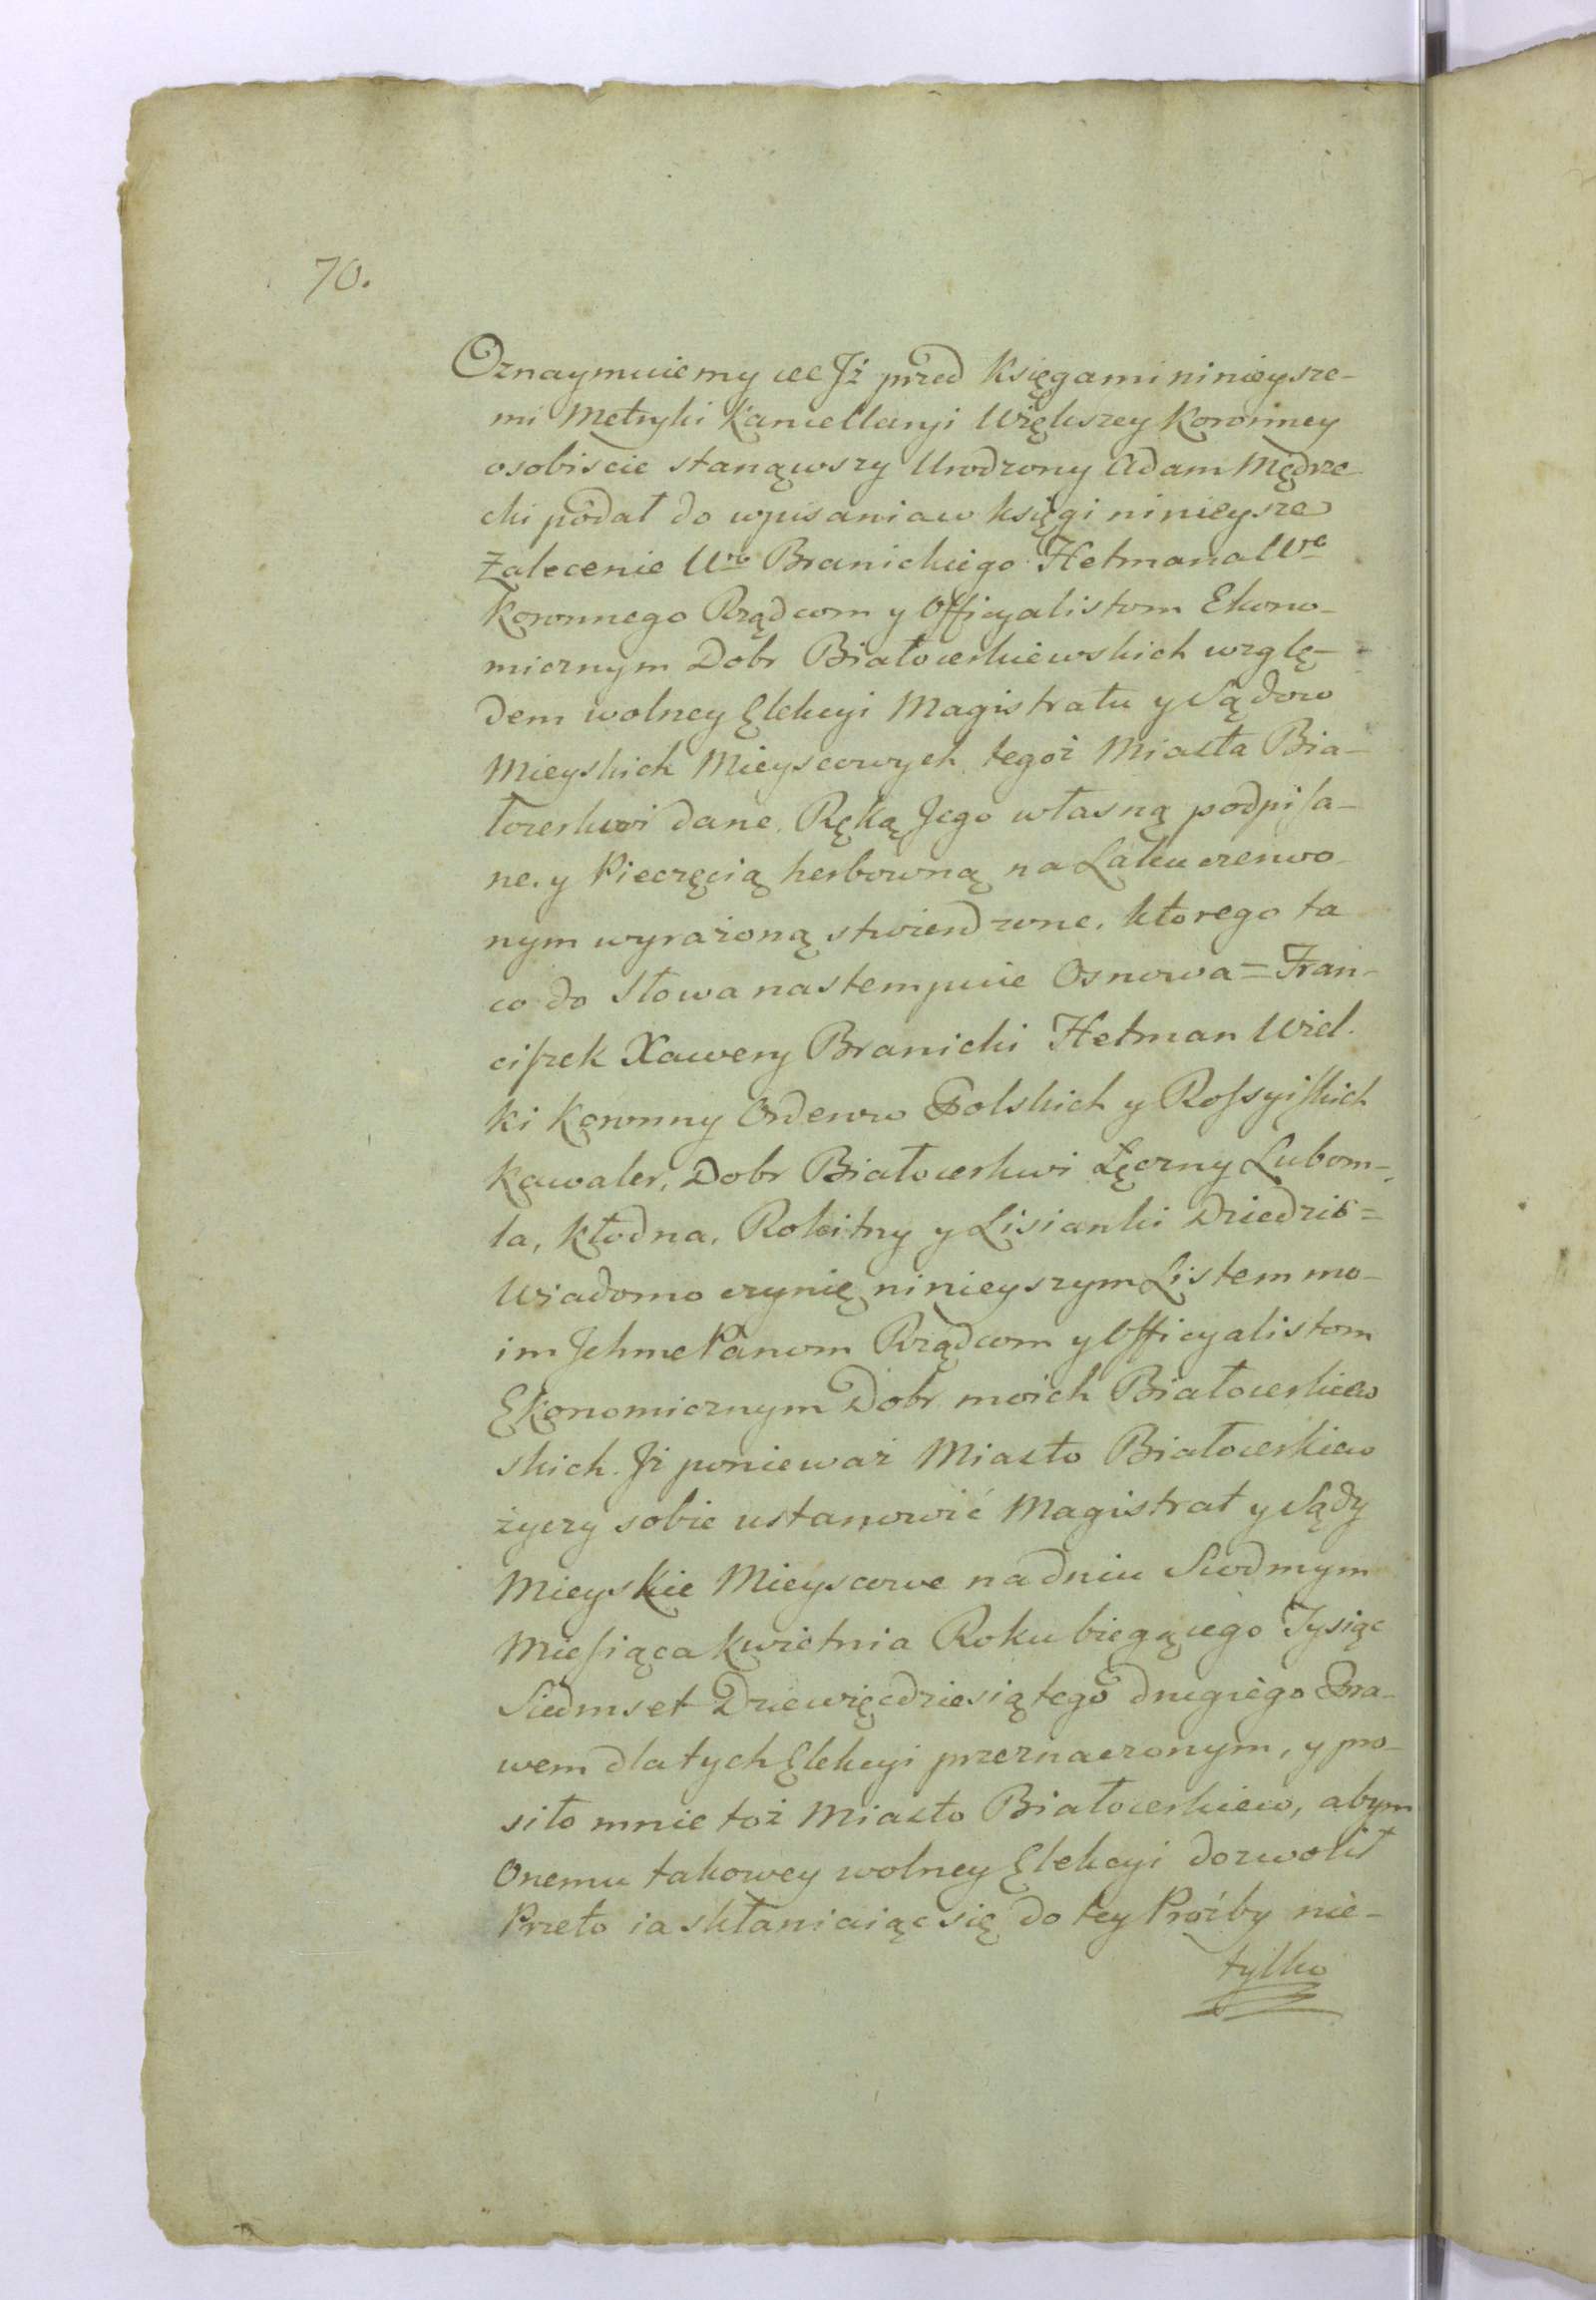 70.
Oznaymuiemy etc Jż przed Księgami ninieysze-
mi Metryki Kancellaryi Większey Koronney
osobiscie stanąwszy Urodzony Adam Mędrze-
cki podał do wpisania w księgi ninieysze
Zalecenie Ur̃o Branickiego Hetmana Wo
Koronnego Rządcom y Officyalistom Ekono-
micznym Dobr Białocerkiewskich wzglę-
dem wolney Elekcyi Magistratu y Sądow
Mieyskich Mieyscowych tegoż Miasta Bia-
łocerkwi dane, Ręką Jego własną podpisa-
ne. y Pieczęcią herbowną na Laku czerwo-
nym wyrażoną stwierdzone. ktorego ta
co do Słowa nastempuie Osnowa = Fran-
ciszek Xawery Branicki Hetman Wiel.
ki Koronny Orderow Polskich y Rossyiskich
Kawaler, Dobr Białocerkwi Łęczny Lubom-
la, Kłodna, Rokitny y Lisianki Dziedzic =
Wiadomo czynię ninieyszym Listem mo-
im Jchmc Panom Rządcom y Officyalistom
Ekonomicznym Dobr moich Białocerkiew
skich. Jż ponieważ Miasto Białocerkiew
życzy sobie ustanowić Magistrat y Sądy
Mieyskie Mieyscowe na dniu Siodmym
Miesiąca Kwietnia Roku biegącego Tysiąc
Siedmset Dziewięcdziesiątego drugiego Pra-
wem dla tych Elekcyi przeznaczonym, y pro-
siło mnie toż Miasto Białocerkiew, abym
Onemu takowey wolney Elekcyi dozwolił
Przeto ia skłaniaiąc się do tey Proźby nie-
tylko